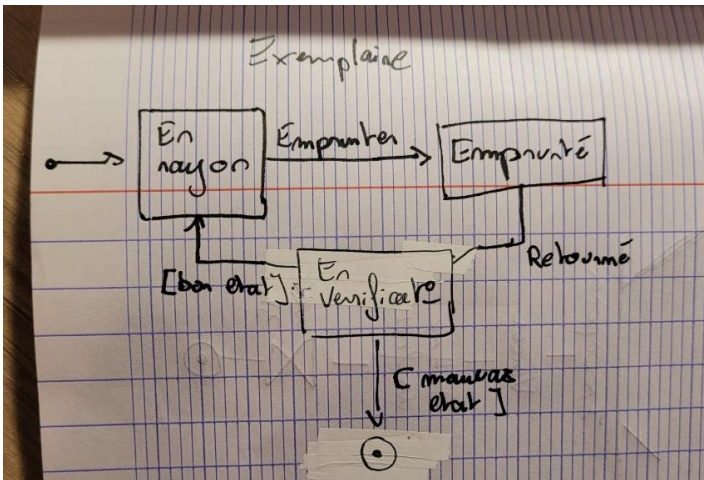 Exemplaire
En
rayon
Emprunter
Emprunté
Retourné
[bon etat]
En
Verificatº
[mauvas
etat]